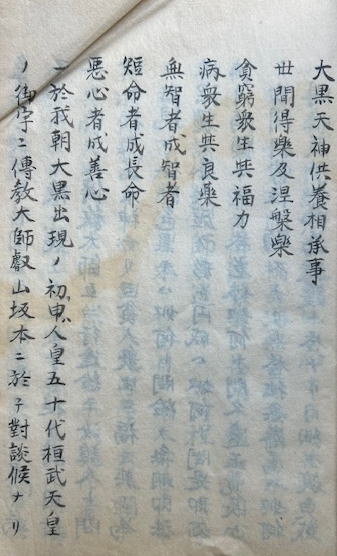 大黒天神供養相承事
世間得樂及涅槃樂
貪窮衆生共福力
病衆生共良藥
無智者成智者
短命者成長命
惡心者成善心
一於我朝大黒出現ノ初申人皇五十代桓武天皇
ノ御宇ニ傳教大師叡山坂本ニ於テ對談候ナリ